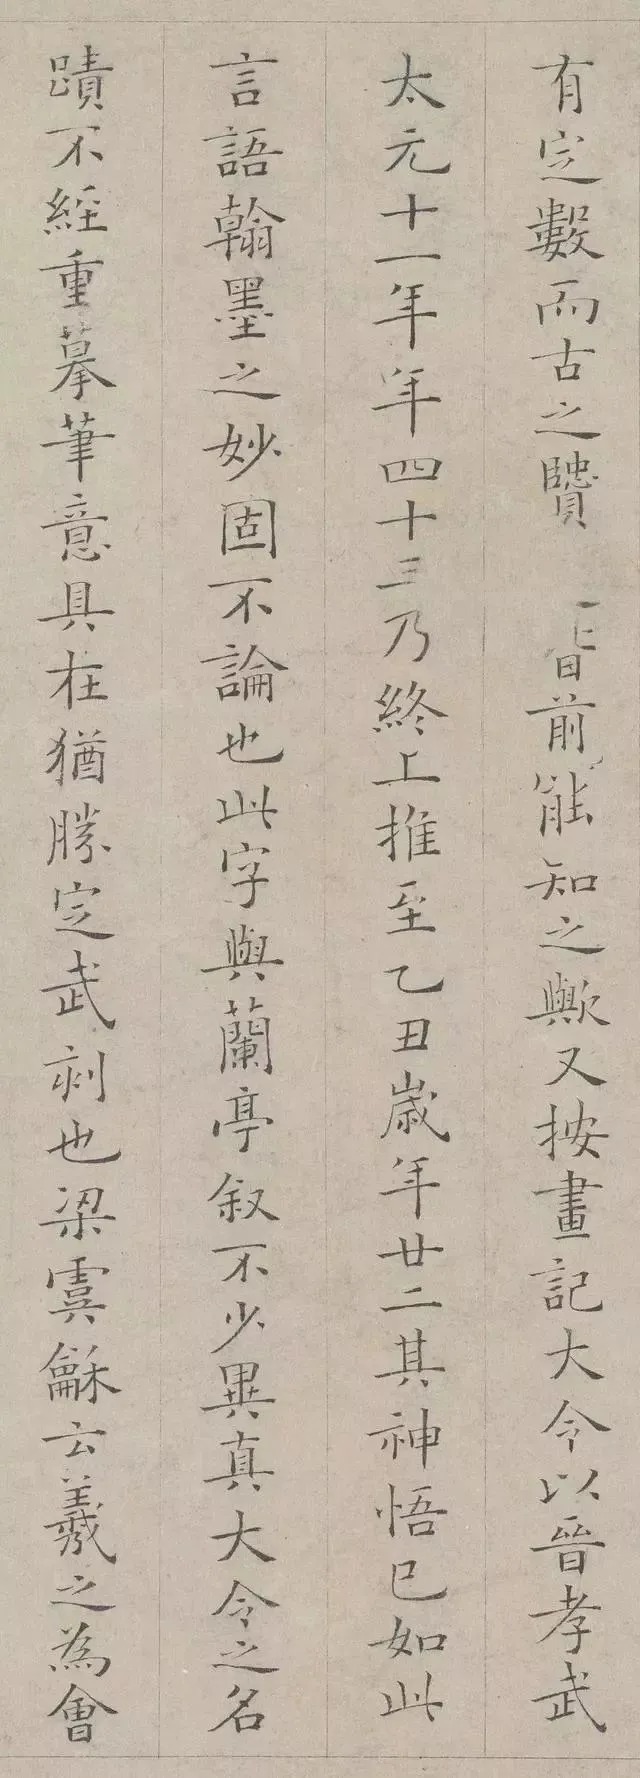 有定數而古之賢　　前能知之歟又按畫記大令以晉孝武
太元十一年年四十三乃終上推至乙丑歲年廿二其神悟已如此
言語翰墨之妙固不論也此字與蘭亭叙不少異真大令之名
蹟不經重摹筆意具在猶勝定武刻也梁虞龢云羲之為會